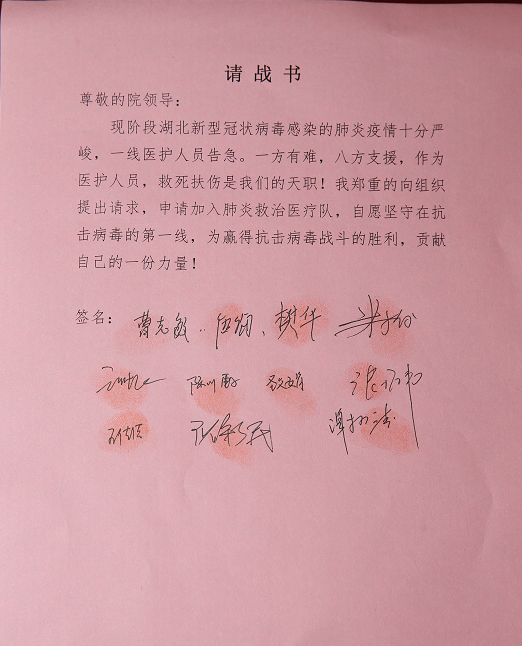 请战书
尊敬的院领导：
现阶段湖北新型冠状病毒感染的肺炎疫情十分严
峻，一线医护人员告急。一方有难，八方支援，作为
医护人员，救死扶伤是我们的天职！我郑重的向组织
提出请求，申请加入肺炎救治医疗队，自愿坚守在抗
击病毒的第一线，为赢得抗击病毒战斗的胜利，贡献
自己的一份力量！
签名：曹志敏 樊华